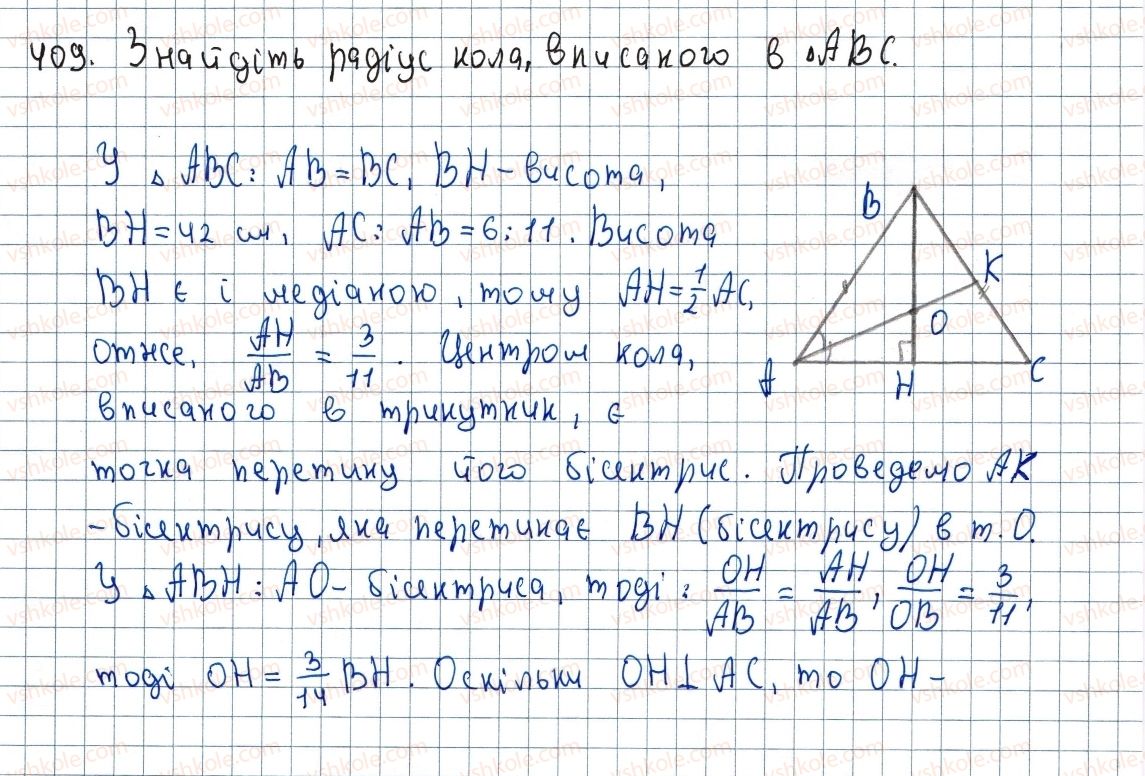 409. Знайдіть радіус кола, вписаного в △ABC.
У △ ABC: AB = BC, BH – висота,
BH = 42 см, AC : AB = 6 : 11. Висота
BH є і медіаною, тому AH = 1/2 AC,
отже, AH/AB = 3/11. Центром кола,
вписаного в трикутник, є
точка перетину його бісектрис. Проведемо AK
– бісектрису, яка перетинає BH (бісектрису) в т. O.
У △ ABH : AO – бісектриса, тоді : OH/AB = AH/AB, OH/OB = 3/11,
тоді OH = 3/14 BH. Оскільки OH ⊥ AC, то OH –
B
K
O
A
H
C
vshkole.com